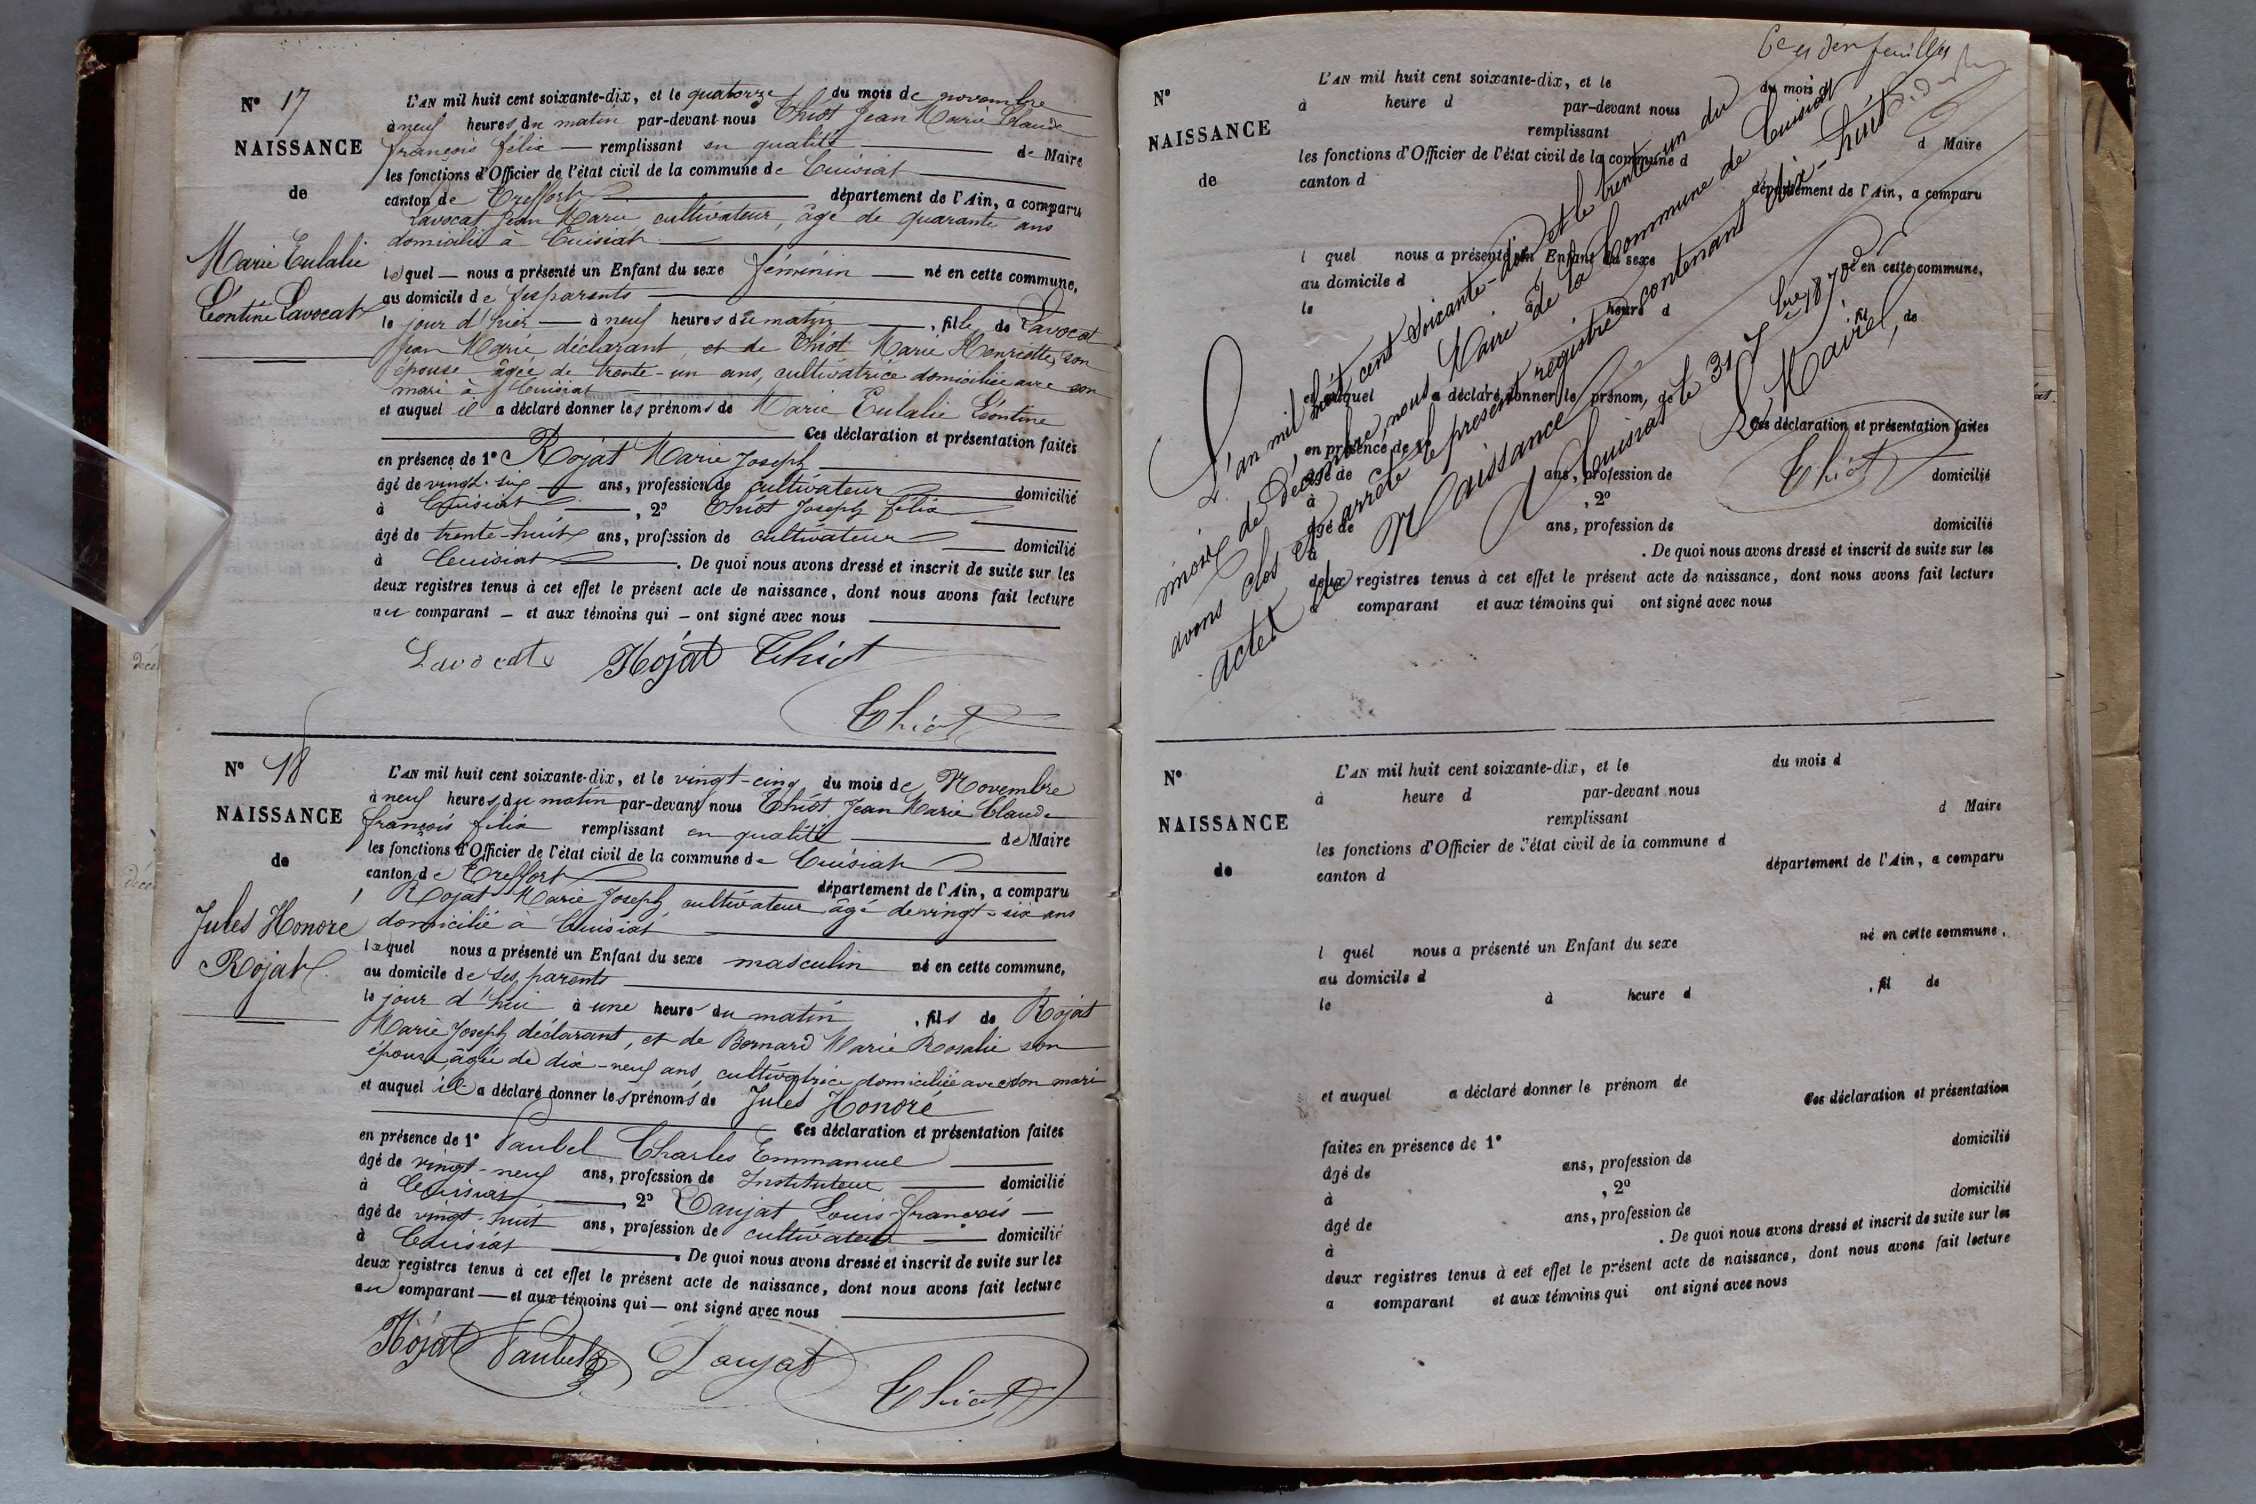 N° 17
NAISSANCE
de
Marie Eulalie
Léontine Lavocat
L'AN mil huit cent soixante-dix, et le quatorze du mois de novembre
à neuf heures du matin par-devant nous Thiot Jean Marie Claude
françois félix — remplissant en qualité — de Maire
les fonctions d'Officier de l'état civil de la commune de Cuisiat
canton de Treffort — département de l'Ain, a comparu
Lavocat Jean Marie cultivateur, âgé de quarante ans
domicilié à Cuisiat
lequel — nous a présenté un Enfant du sexe féminin — né en cette commune,
au domicile de ses parents
le jour d'hier — à neuf heures du matin —, fille de Lavocat
Jean Marie déclarant, et de Thiot Marie Henriette, son
épouse âgée de trente-un ans, cultivatrice domiciliée avec son
mari à Cuisiat
et auquel il a déclaré donner les prénoms de Marie Eulalie Léontine
Ces déclaration et présentation faites
en présence de 1° Rojat Marie Joseph
âgé de vingt-six ans, profession de cultivateur domicilié
à Cuisiat —, 2° Thiot Joseph félix
âgé de trente-huit ans, profession de cultivateur — domicilié
à Cuisiat —. De quoi nous avons dressé et inscrit de suite sur les
deux registres tenus à cet effet le présent acte de naissance, dont nous avons fait lecture
au comparant — et aux témoins qui — ont signé avec nous
Lavocat Rojat Thiot
Thiot
N° 18
NAISSANCE
de
Jules Honore
Rojat
L'AN mil huit cent soixante-dix, et le vingt-cinq du mois de Novembre
à neuf heures du matin par-devant nous Thiot Jean Marie Claude
françois félix remplissant en qualité — de Maire
les fonctions d'Officier de l'état civil de la commune de Cuisiat
canton de Treffort — département de l'Ain, a comparu
Rojat Marie Joseph cultivateur âgé de vingt-six ans
domicilié à Cuisiat
lequel nous a présenté un Enfant du sexe masculin né en cette commune,
au domicile de ses parents
le jour d'hui à une heure du matin, fils de Rojat
Marie Joseph déclarant, et de Bernard Marie Rosalie son
épouse, âgée de dix-neuf ans, cultivatrice domiciliée avec son mari
et auquel il a déclaré donner les prénoms de Jules Honoré
Ces déclaration et présentation faites
en présence de 1° Vaubel Charles Emmanuel
âgé de vingt-neuf ans, profession de Instituteur — domicilié
à Cuisiat —, 2° Danjat Louis-françois —
âgé de vingt-huit ans, profession de cultivateur — domicilié
à Cuisiat —. De quoi nous avons dressé et inscrit de suite sur les
deux registres tenus à cet effet le présent acte de naissance, dont nous avons fait lecture
au comparant — et aux témoins qui — ont signé avec nous
Rojat Vaubel Danjat
Thiot
feuillet
N°
NAISSANCE
de
L'AN mil huit cent soixante-dix, et le du mois d
à heure d par-devant nous
remplissant d Maire
les fonctions d'Officier de l'état civil de la commune d
canton d département de l'Ain, a comparu
l quel nous a présenté un Enfant du sexe né en cette commune,
au domicile d
le à heure d , fil de
et auquel a déclaré donner le prénom de
Ces déclaration et présentation faites
en présence de 1°
âgé de ans, profession de domicilié
à , 2°
âgé de ans, profession de domicilié
à . De quoi nous avons dressé et inscrit de suite sur les
deux registres tenus à cet effet le présent acte de naissance, dont nous avons fait lecture
comparant et aux témoins qui ont signé avec nous
L'an mil huit cent soixante-dix et le trente-un du
mois de Décembre, nous Maire de la Commune de Cuisiat
avons clos et arrêté le présent registre contenant dix-huit
actes de Naissance
à Cuisiat le 31 Xbre 1870
Le Maire,
Thiot
N°
NAISSANCE
de
L'AN mil huit cent soixante-dix, et le du mois d
à heure d par-devant nous
remplissant d Maire
les fonctions d'Officier de l'état civil de la commune d
canton d département de l'Ain, a comparu
l quel nous a présenté un Enfant du sexe né en cette commune,
au domicile d
le à heure d , fil de
et auquel a déclaré donner le prénom de
Ces déclaration et présentation
faites en présence de 1°
âgé de ans, profession de domicilié
à , 2°
âgé de ans, profession de domicilié
à . De quoi nous avons dressé et inscrit de suite sur les
deux registres tenus à cet effet le présent acte de naissance, dont nous avons fait lecture
a comparant et aux témoins qui ont signé avec nous